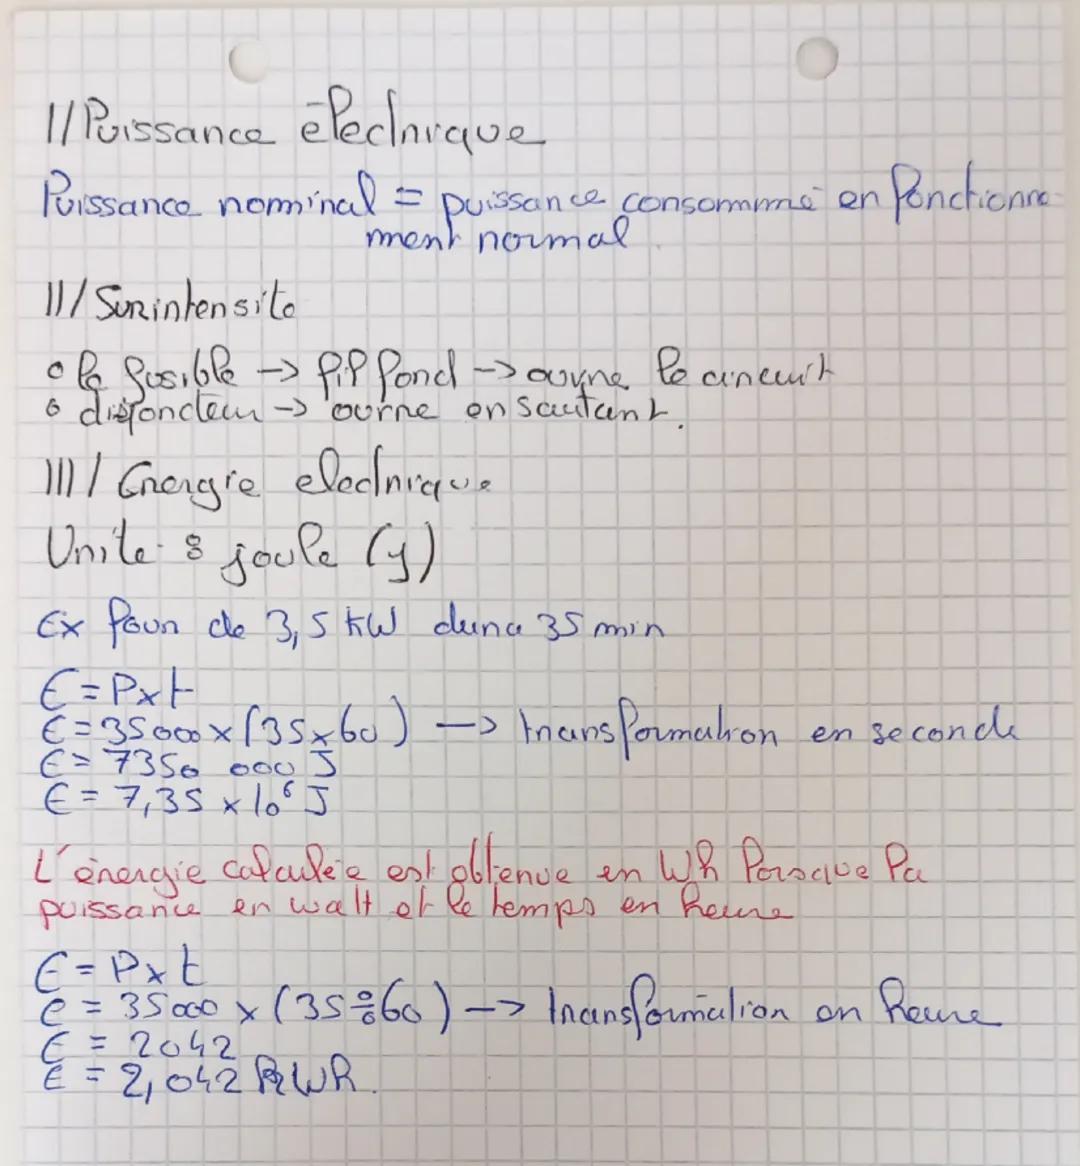 I/ Puissance électrique
Puissance nominal = puissance consommé en fonctionne-
ment normal
II/ Surintensite
• le fusible -> fil fond -> ouvre le circuit
• disjoncteur -> ouvre en sautant.
III/ Energie electrique
Unite : joule (J)
Ex four de 3,5 kW dura 35 min
E = P x t
E = 35000 x (35 x 60) -> transformation en seconde
E = 7350 000 J
E = 7,35 x 10⁶ J
L'énergie calculée est obtenue en Wh lorsque la
puissance en watt et le temps en heure
E = P x t
e = 35000 x (35 ÷ 60) -> transformation en heure
E = 2042
E = 2,042 kWh.